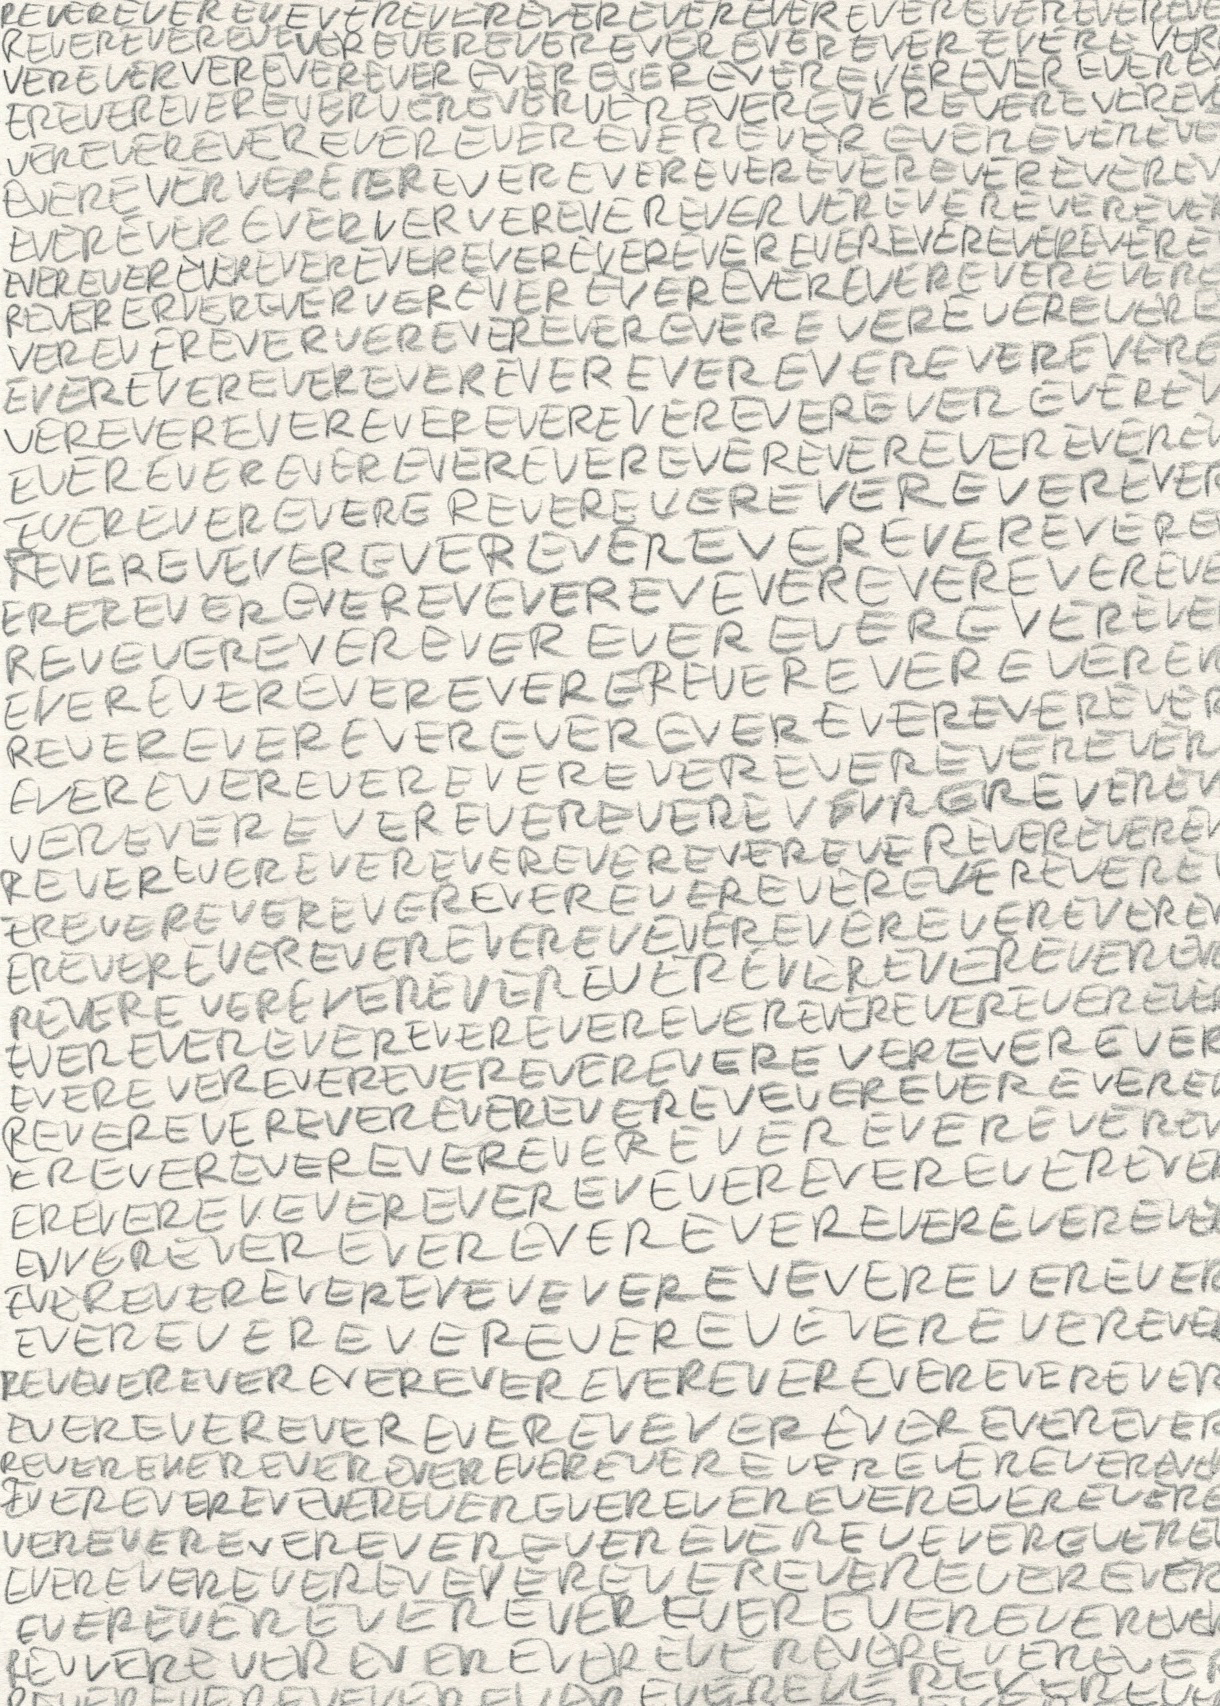 REVEREVEREVEVEREVEREVEREVEREVEREVEREVEREVEREVEREVEREVE
REVEREVEREVEVEREVEREVEREVEREVEREVEREVEREVEREVERE VER
VEREVERVEREVEREVER EVER EVER EVEREVEREVEREVER EVEREV
EREVEREVEREVERVEREVERVEREVEREVEREVEREVEREVEREVE
VEREVEREVEREVEREVEREVEREVEREVEREVEREVEREVE
EVEREVERVEREREREVEREVEREVEREVEREVEREVEREV
EVEREVEREVERVERVEREVEREVERVEREVEREVEREVER
EVEREVEREVEREVEREVEREVEREVEREVEREVEREVEREVEREVERE
REVERERVEREVERVEREVEREVEREVEREVEREVEREVERE
VEREVEREVERVEREVEREVEREVEREVEREVEREVEREVERE
EVEREVEREVEREVEREVEREVEREVEREVEREVERE
VEREVEREVEREVEREVEREVEREVEREVEREVEREV
EVEREVEREVEREVEREVEREVEREVEREVEREVEREV
EVEREVEREVERE REVEREVEREVEREVEREVEREVER
REVEREVEVEREVEREVEREVEREVEREVEREVERE
EREREVEREVEREVEVEREVEVEREVEREVEREVE
REVEVEREVEREVEREVEREVEREVEREVEREVE
EVEREVEREVEREVEREREVEREVEREVEREVEREV
REVEREVEREVEREVEREVEREVEREVEREVER
EVEREVEREVEREVEREVEREVEREVEREVEREVER
VEREVEREVEREVEREVEREVEVREREVEREV
REVEREVEREVEREVEREVEREVEREVEREVEREVEREVEREV
EREVEREVEREVEREVEREVEREVEREVEREVEREVEREV
EREVEREVEREVEREVEREVEVEREVEREVEREVEREVEREV
REVERE VEREVEREVEREVEREVEREVEREVEREVEREVER
EVEREVEREVEREVEREVEREVEREVEREVEREVEREVEREVER
EVERE VEREVEREVEREVEREVEREVERE VEREVEREVER
REVEREVEREVEREVEREVEREVEVEREVEREVEREVERE
EREVEREVEREVEREVEREVEREVEREVEREVEREV
EREVEREVEVEREVEREVEVEREVEREVEREVEREVER
EVVEREVEREVEREVEREVEREVEREVEREVEREVE
EVEREVEREVEREVEVEVEREVEVEREVEREVER
EVEREVEREVEREVEREVEVEREVEREVE
REVEVEREVEREVEREVEREVEREVEREVEREVEREVER
EVEREVEREVEREVEREVEVEREVEREVEREVER
REVEREVEREVEREVEREVEREVEREVEREVEREVEREVE
EVEREVEREVEVEREVEREVEREVEREVEREVEREVERE
VEREVEREVEREVEREVEREVEREVEVEREVERE
EVEREVEREVEREVEVEREVEREVEREVEREVER
EVEREVEREVEREVEREVEREVEREVEREVEREVE
REVVEREVEREVEREVEREVEREVEREVEREVE